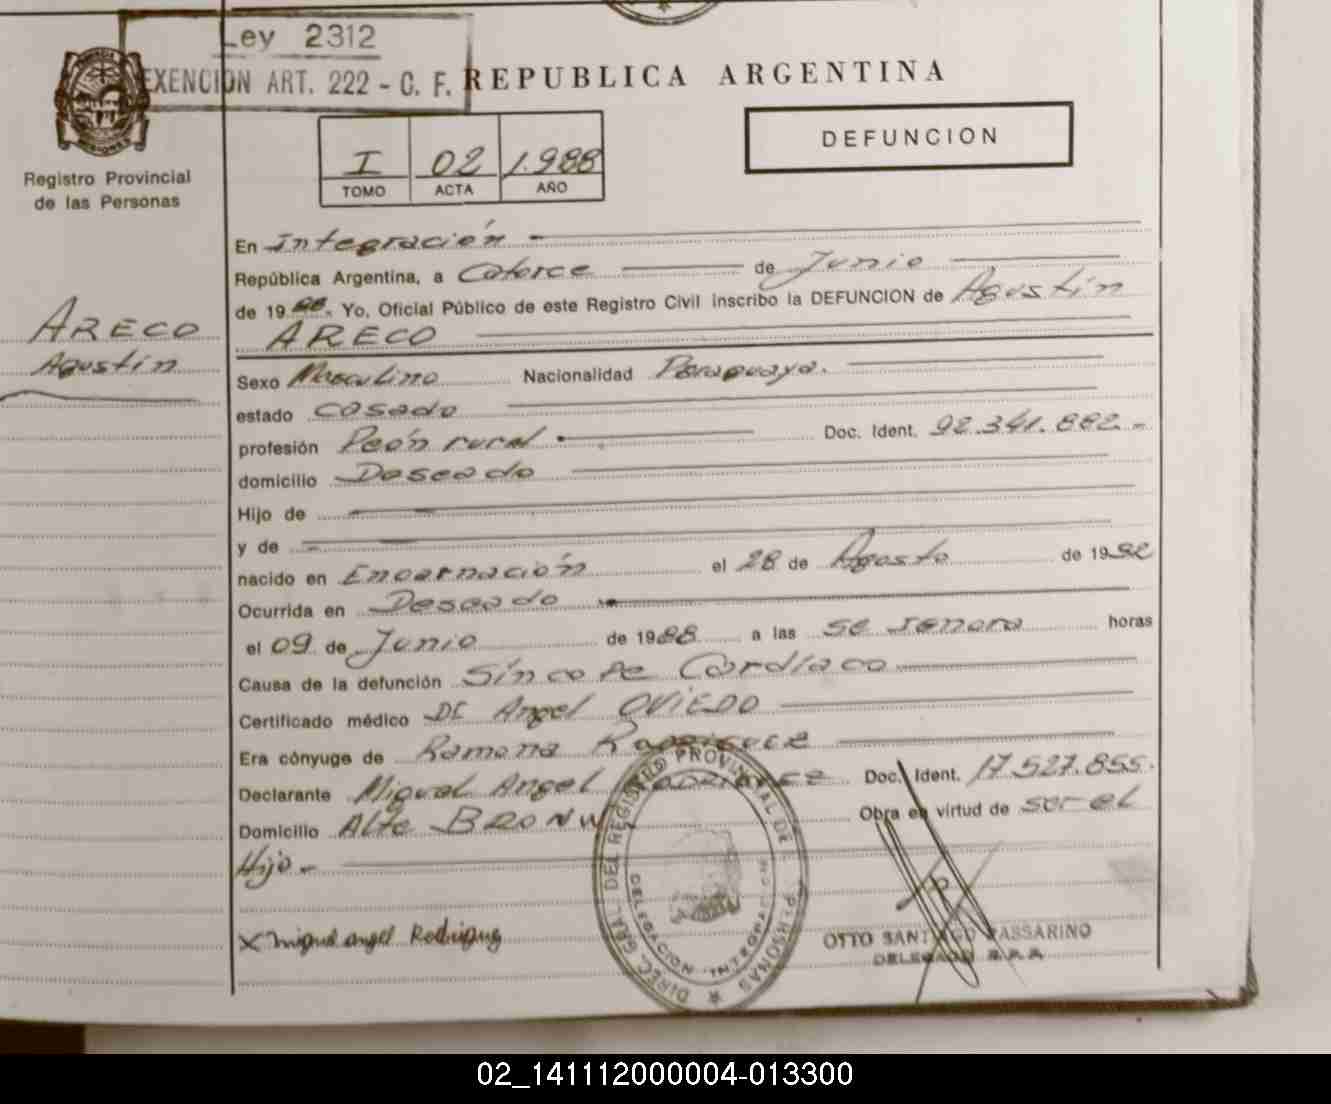 Ley 2312
EXENCION ART. 222 - C. F.
REPUBLICA ARGENTINA
MISIONES
Registro Provincial
de las Personas
I 02 1.988
TOMO ACTA AÑO
DEFUNCION
ARECO
Agustín
En Integración
República Argentina, a Catorce de Junio
de 1988. Yo, Oficial Público de este Registro Civil inscribo la DEFUNCION de Agustín
ARECO
Sexo Masculino Nacionalidad Paraguaya.
estado casado
profesión Peón rural Doc. Ident. 92.341.882.-
domicilio Deseado
Hijo de
y de
nacido en Encarnación el 28 de Agosto de 19
Ocurrida en Deseado
el 09 de Junio de 1988 a las se ignora horas
Causa de la defunción Síncope Cardíaco
Certificado médico Dr Angel OVIEDO
Era cónyuge de Ramona
Declarante Miguel Angel Doc. Ident. 17.527.855.
Domicilio Alte BROWN Obra en virtud de ser el
Hijo.-
X miguel angel Rodriguez
DIREC. GRAL. DEL REGISTRO PROVINCIAL DE PERSONAS
DELEGACION INTEGRACION
OTTO SANTIAGO PASSARINO
DELEGADO R.P.P.
02_141112000004-013300